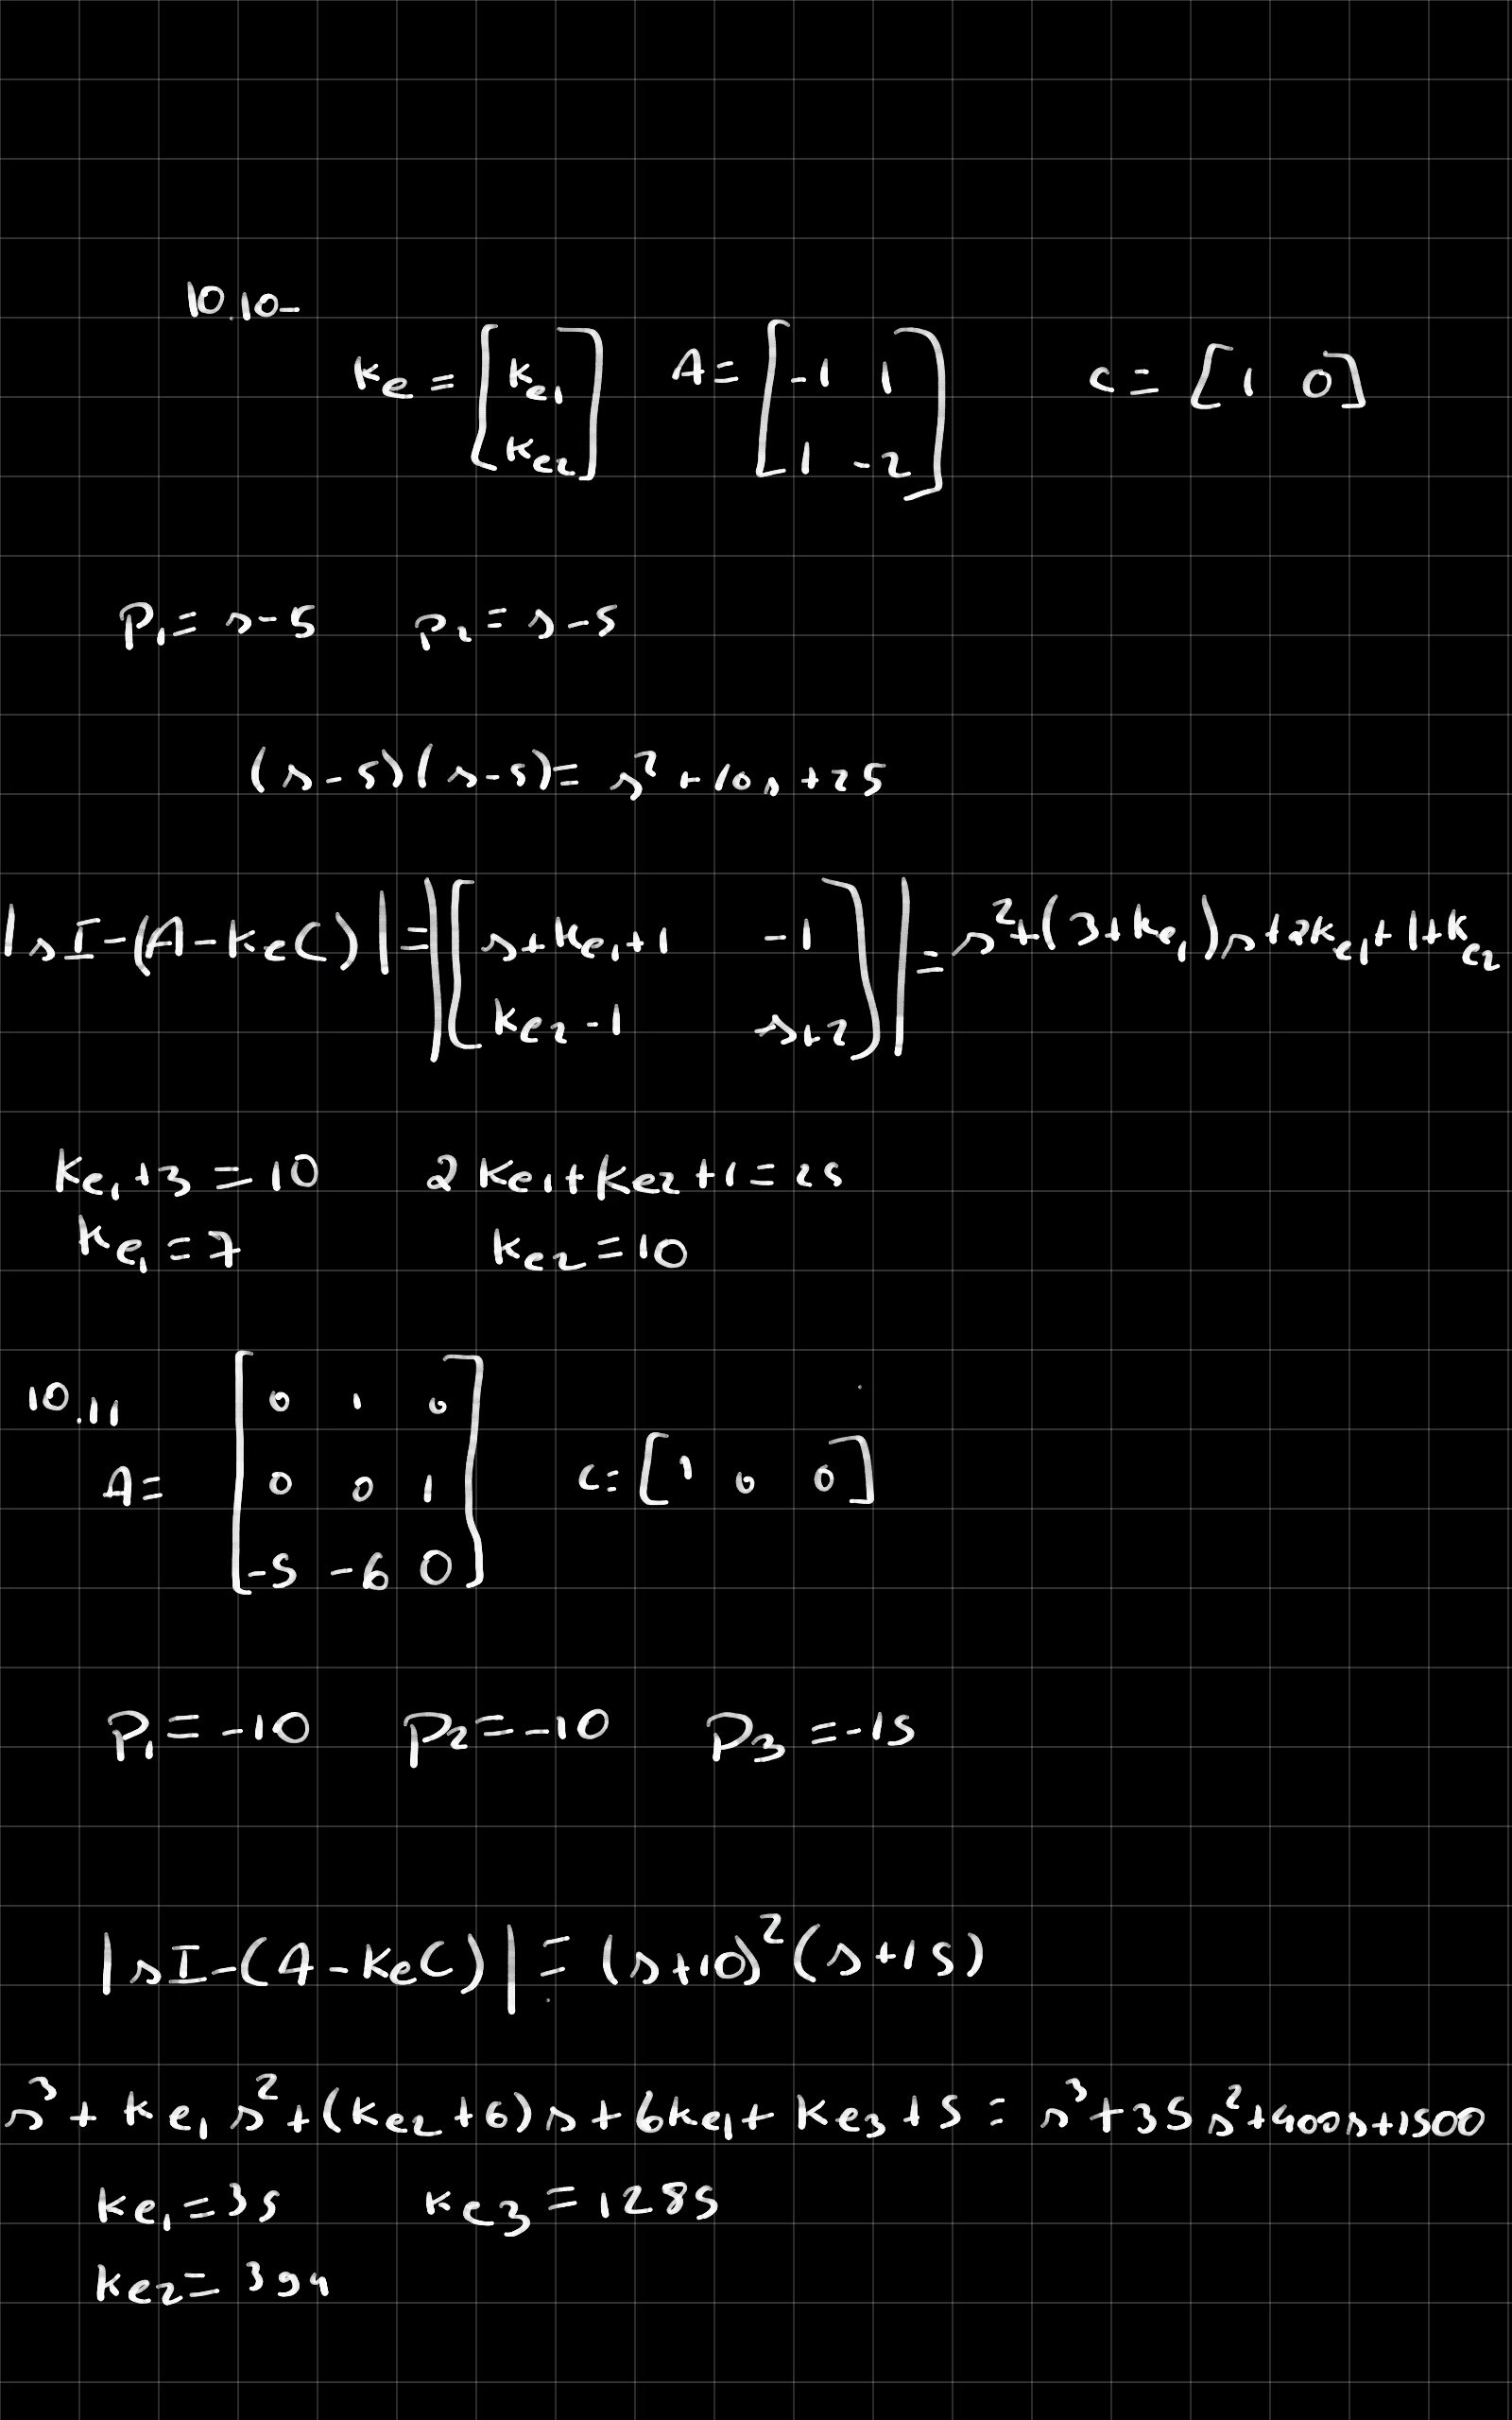 10.10-
ke = [ke1 ke2] A = [-1 1 1 -2] c = [1 0]
P1 = s-5 p2 = s-5
(s-5)(s-5) = s² + 10s + 25
|sI-(A-keC)| = |[s+ke1+1 -1 ke2-1 s+2]| = s²+(3+ke1)s+2ke1+1+ke2
ke1+3 = 10 2ke1+ke2+1 = 25
ke1 = 7 ke2 = 10
10.11
A = [0 1 0 0 0 1 -5 -6 0] C = [1 0 0]
P1 = -10 P2 = -10 P3 = -15
|sI-(A-keC)| = (s+10)²(s+15)
s³ + ke1 s² + (ke2+6)s + 6ke1 + ke3 + 5 = s³+35s²+400s+1500
ke1 = 35 ke3 = 1285
ke2 = 394